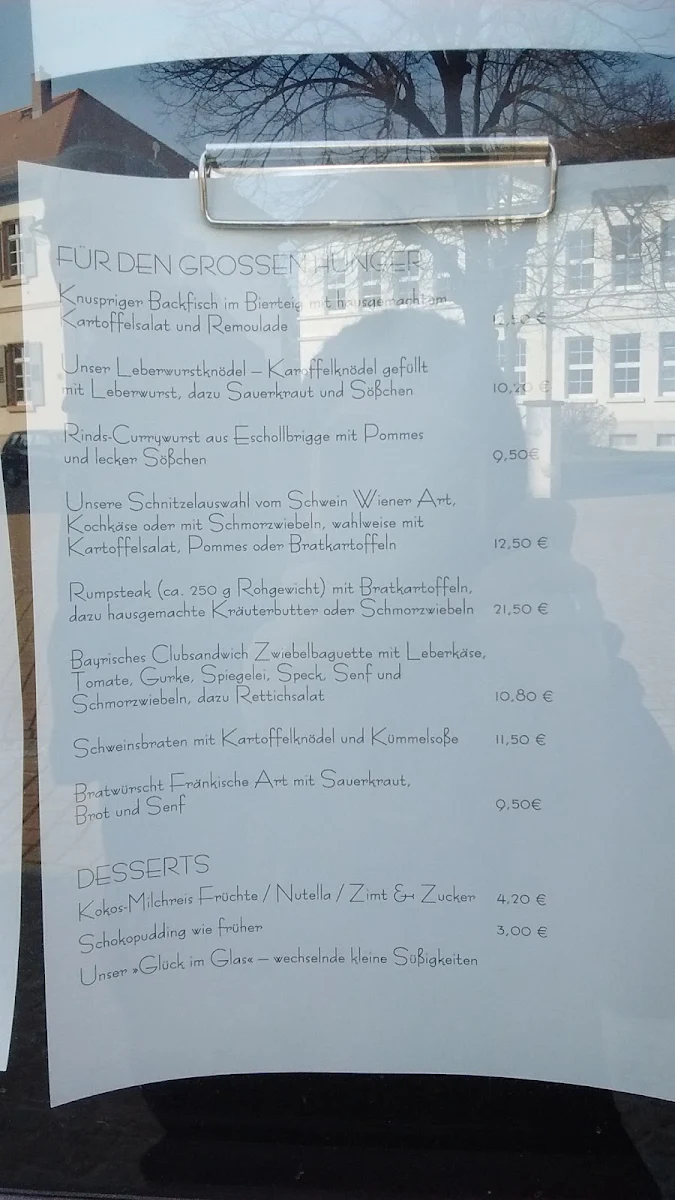 FÜR DEN GROSSEN HUNGER
Knuspriger Backfisch im Bierteig mit hausgemachtem
Kartoffelsalat und Remoulade
Unser Leberwurstknödel – Kartoffelknödel gefüllt
mit Leberwurst, dazu Sauerkraut und Sößchen 10,20 €
Rinds-Currywurst aus Eschollbrigge mit Pommes
und lecker Sößchen 9,50€
Unsere Schnitzelauswahl vom Schwein Wiener Art,
Kochkäse oder mit Schmorzwiebeln, wahlweise mit
Kartoffelsalat, Pommes oder Bratkartoffeln 12,50 €
Rumpsteak (ca. 250 g Rohgewicht) mit Bratkartoffeln,
dazu hausgemachte Kräuterbutter oder Schmorzwiebeln 21,50 €
Bayrisches Clubsandwich Zwiebelbaguette mit Leberkäse,
Tomate, Gurke, Spiegelei, Speck, Senf und
Schmorzwiebeln, dazu Rettichsalat 10,80 €
Schweinsbraten mit Kartoffelknödel und Kümmelsoße 11,50 €
Bratwürscht Fränkische Art mit Sauerkraut,
Brot und Senf 9,50€
DESSERTS
Kokos-Milchreis Früchte / Nutella / Zimt & Zucker 4,20 €
Schokopudding wie früher 3,00 €
Unser »Glück im Glas« – wechselnde kleine Süßigkeiten